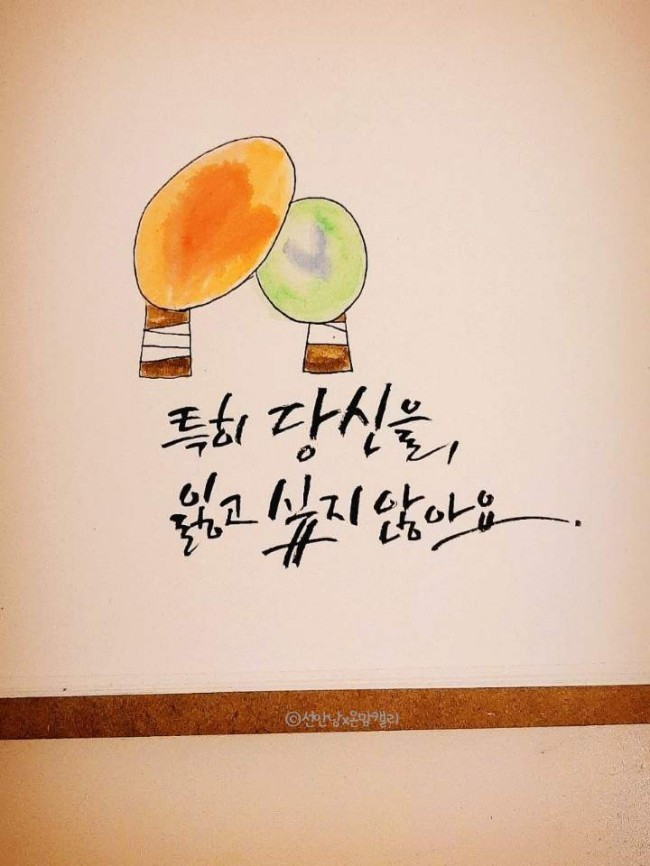 특히 당신을,
잃고 싶지 않아요.
©선안남x온맘캘리